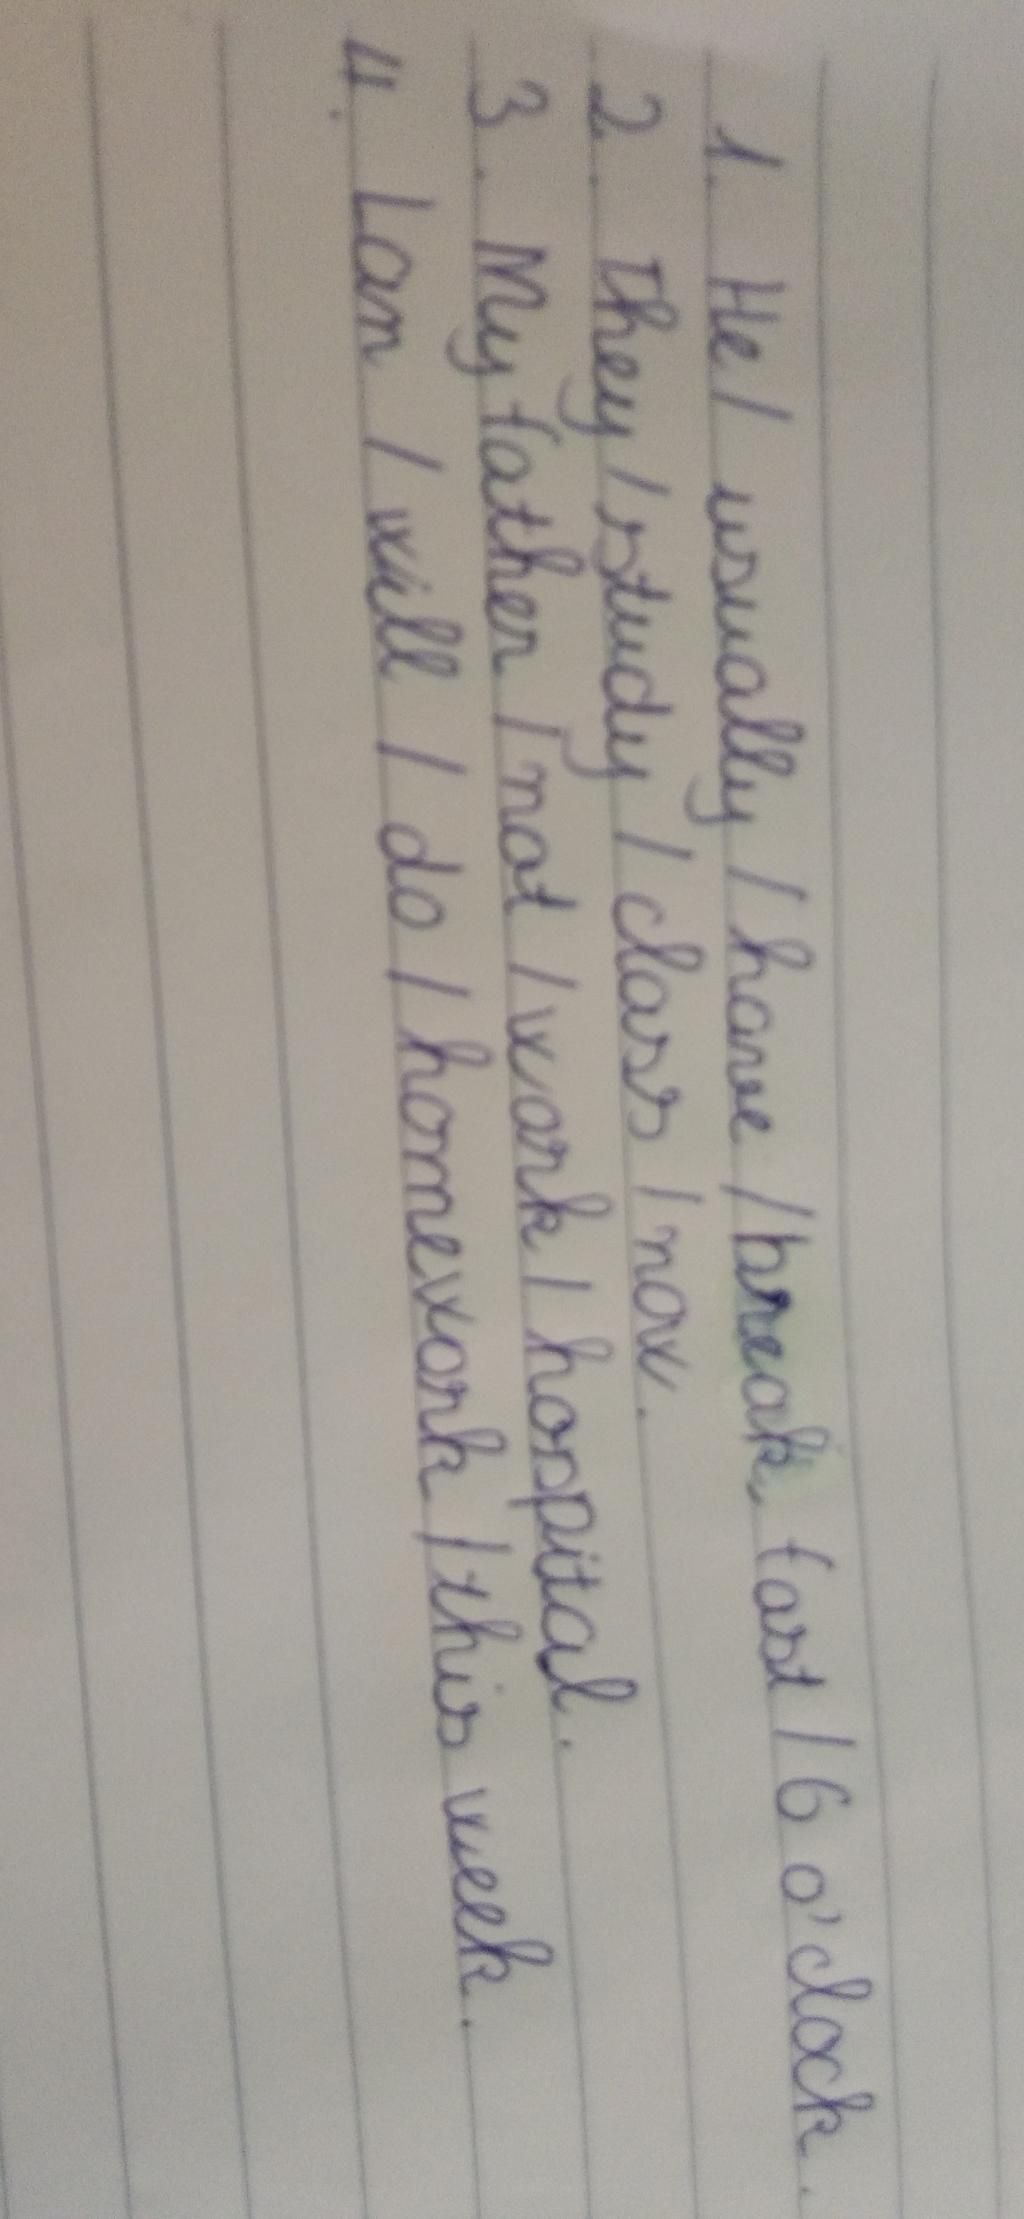 1. He / usually / have / break, fast / 6 o'clock.
2. They / study / class / now.
3. My father / not / work / hospital.
4. Lan / will / do / homework / this week.